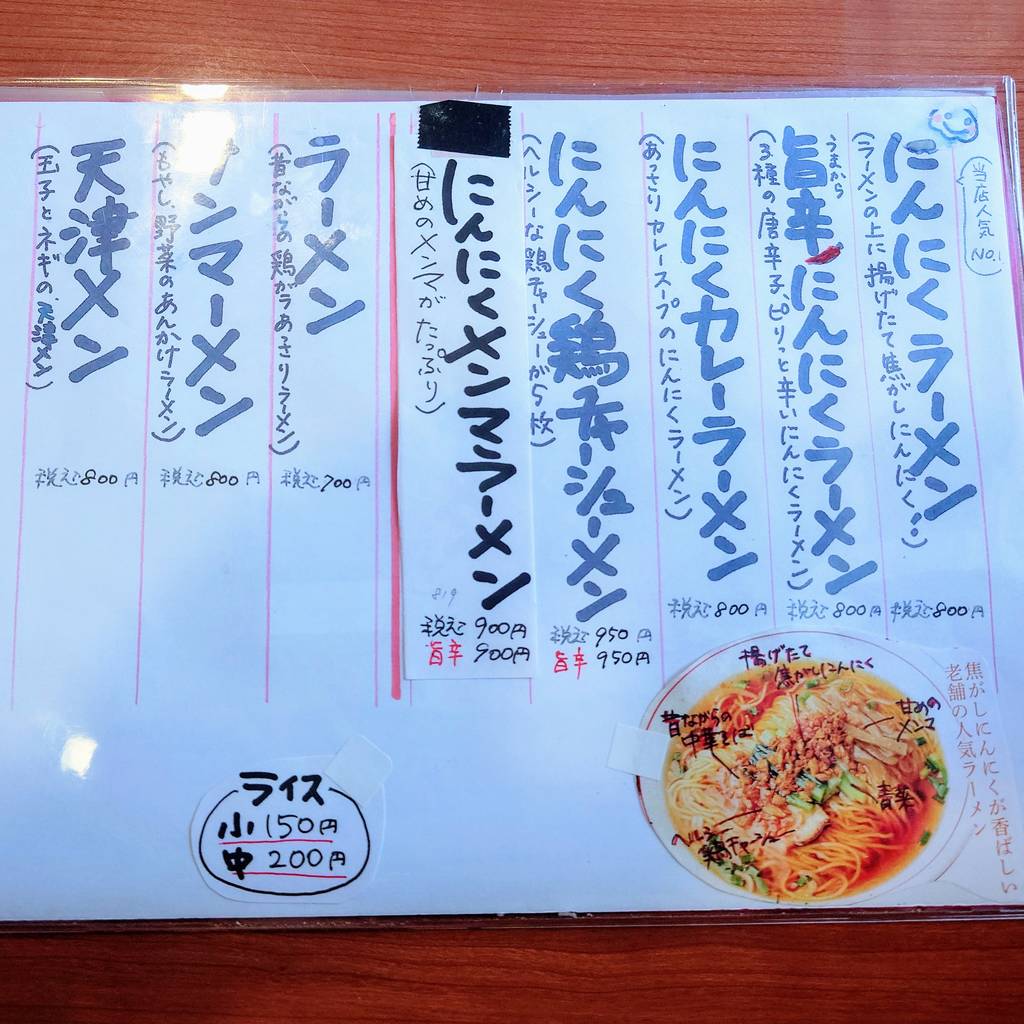 当店人気
No.1
にんにくラーメン
(ラーメンの上に揚げたて焦がしにんにく!!)
税込800円
うまから
旨辛にんにくラーメン
(3種の唐辛子、ピリっと辛いにんにくラーメン)
税込800円
にんにくカレーラーメン
(あっさりカレースープのにんにくラーメン)
税込800円
にんにく鶏チャーシューメン
(ヘルシーな鶏チャーシューが5枚)
税込950円
旨辛950円
にんにくメンマラーメン
(甘めのメンマがたっぷり)
819
税込900円
旨辛900円
ラーメン
(昔ながらの鶏ガラあっさりラーメン)
税込700円
サンマーメン
(もやし、野菜のあんかけラーメン)
税込800円
天津メン
(玉子とネギの、天津メン)
税込800円
ライス
小150円
中200円
揚げたて
焦がしにんにく
甘めの
メンマ
昔ながらの
中華そば
青菜
ヘルシー
鶏チャーシュー
焦がしにんにくが香ばしい
老舗の人気ラーメン